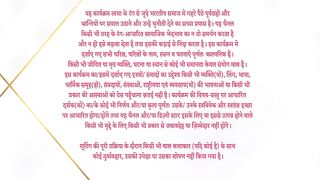 यह कार्यक्रम त्वचा के रंग से जुड़े भारतीय समाज में गहरे पैठे पूर्वाग्रहों और
भ्रान्तियों पर सवाल उठाने और उन्हें चुनौती देने का सच्चा प्रयास है। यह चैनल
किसी भी तरह के रंग-आधारित सामाजिक भेदभाव का न तो समर्थन करता है
और न ही इसे बढ़ावा देता है तथा इसकी कड़ाई से निंदा करता है। इस कार्यक्रम मे
दर्शाए गए सभी चरित्र, परिचयों के नाम, स्थान व घटनाएँ पूर्णतः काल्पनिक हैं।
किसी भी जीवित या मृत व्यक्ति, घटना या स्थान से कोई भी समानता केवल संयोग मात्र है।
इस कार्यक्रम का/उसमें दर्शाए गए दृश्यों/संवादों का उद्देश्य किसी भी व्यक्ति(यों), लिंग, भाषा,
धार्मिक समूह(हों), संप्रदायों, संस्थाओं, राष्ट्रीयता एवं व्यवसाय(यों) की भावनाओं को किसी भी
प्रकार की आस्थाओं को ठेस पहुँचाना कतई नहीं है। कार्यक्रम की विषय-वस्तु पर आधारित
दर्शक(कों) का/के कोई भी निर्णय और/या कृत्य पूर्णतः उसके/ उनके स्वविवेक और स्वतंत्र इच्छा
पर आधारित होगा/होंगे तथा यह चैनल और/या डिज़्नी स्टार इसके लिए या इससे उत्पन्न होने वाले
किसी भी मुद्दे के लिए किसी भी प्रकार से जवाबदेह या ज़िम्मेदार नहीं होंगे।
शूटिंग की पूरी प्रक्रिया के दौरान किसी भी बाल कलाकार (यदि कोई है) के साथ
कोई दुर्व्यवहार, उसकी उपेक्षा या उसका शोषण नहीं किया गया है।